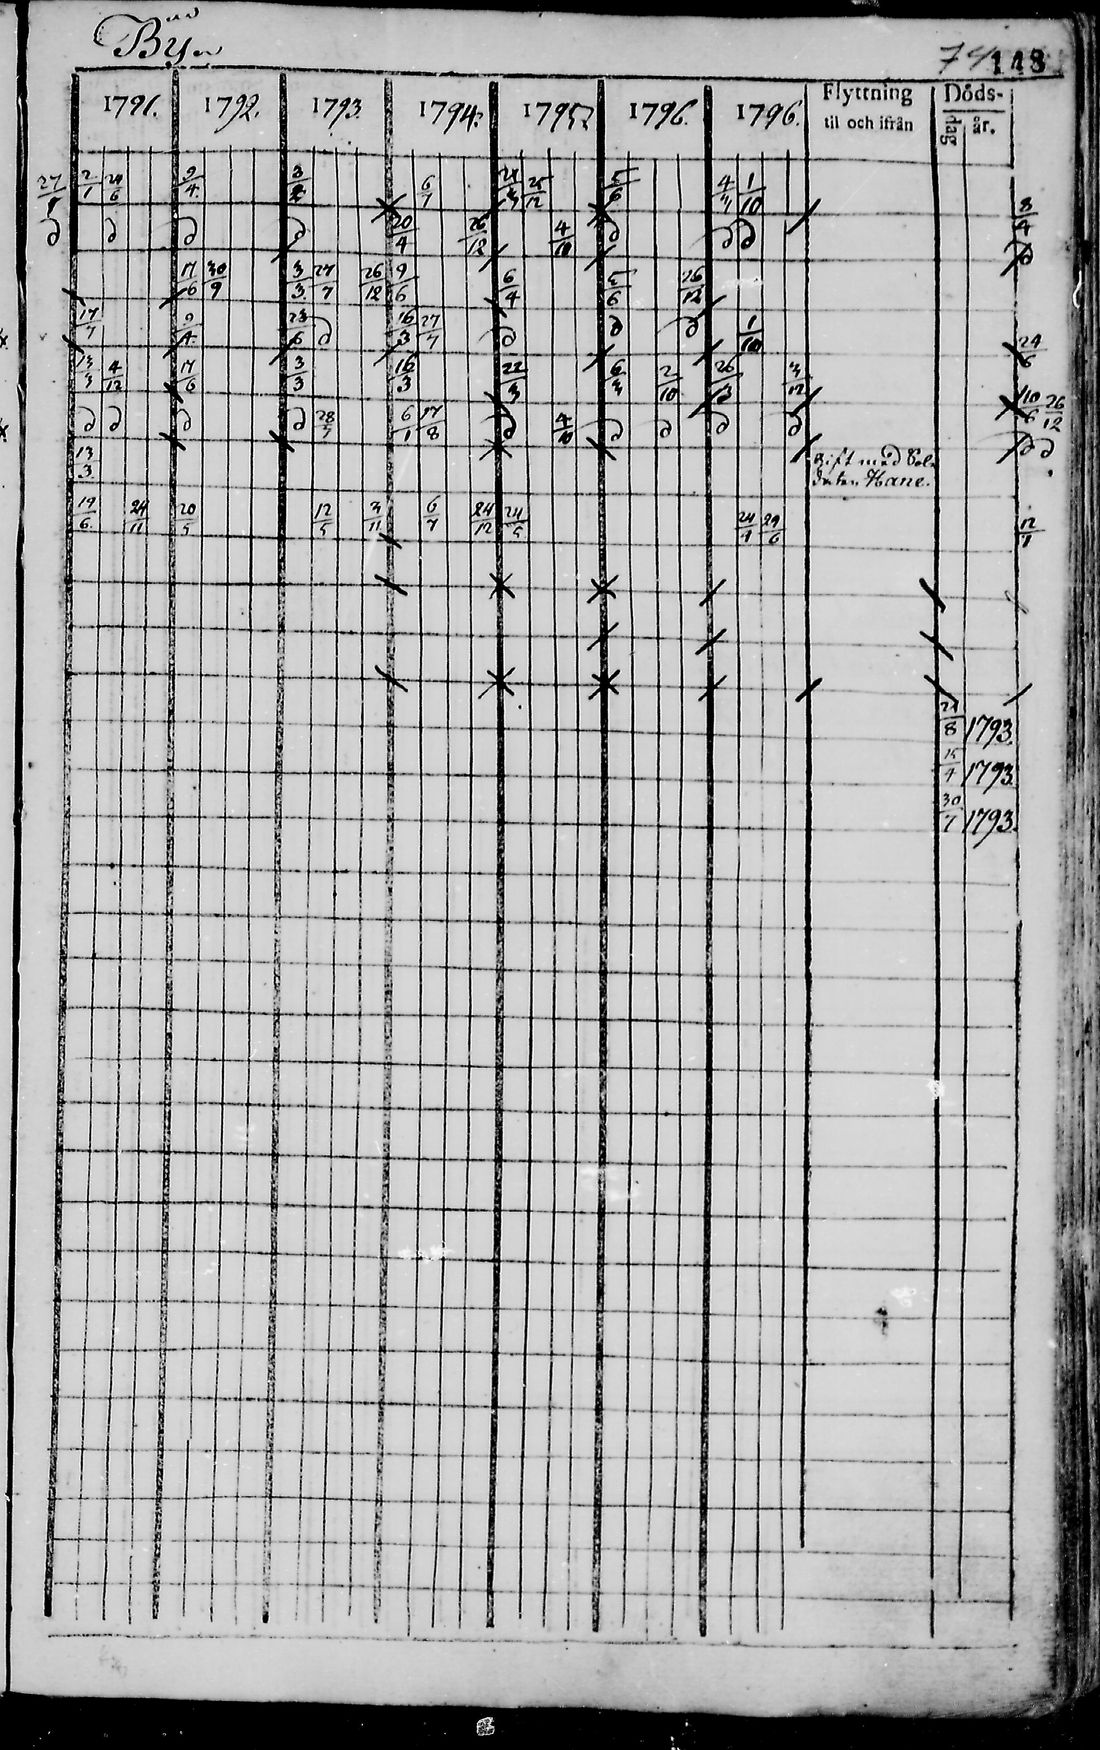 Byn
74 148
1791. 1792. 1793. 1794. 1795. 1796. 1796. Flyttning til och ifrån Döds- dag år.
27/1 2/1 24/6 9/4 6/7 25/12 5/6 1/10 8/4
∂ ∂ ∂ ∂ 20/4 26/12 4/10 ∂ ∂ ∂ ∂
17/6 30/9 3/3 27/7 26/12 9/6 6/4 5/6 26/12
17/7 9/4 23/6 ∂ 16/3 27/7 ∂ ∂ ∂ 1/10 24/6
13/3 4/12 17/6 3/3 16/3 22/3 6/3 2/10 26/3 3/12 10/6 26/12
∂ ∂ ∂ ∂ 28/7 6/1 17/8 ∂ 4/10 ∂ ∂ ∂ ∂ ∂ ∂
13/3 Gift med Sol-
daten Hane.
19/6 24/11 20/5 12/5 3/11 6/7 24/12 24/5 24/1 29/6 12/1
21/8 1793.
15/4 1793.
30/7 1793.